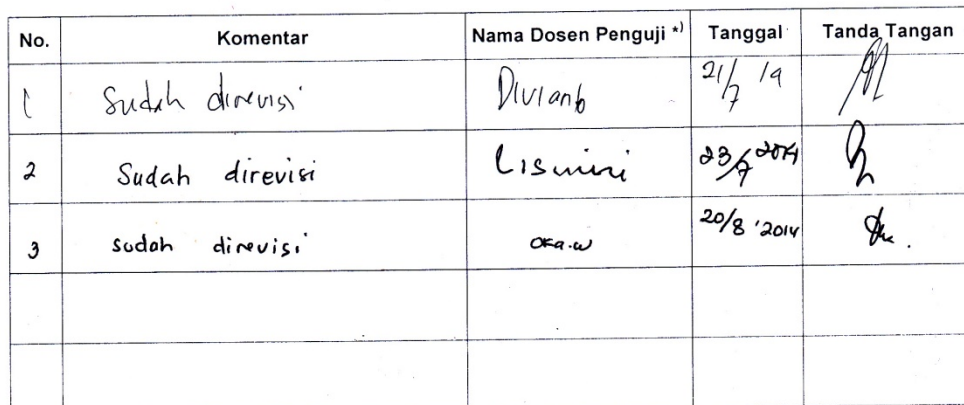 No. Komentar Nama Dosen Penguji *) Tanggal Tanda Tangan
1 Sudah direvisi 21/7 14
2 Sudah direvisi Lismini 23/7 2014
3 sudah direvisi oka.w 20/8 '2014